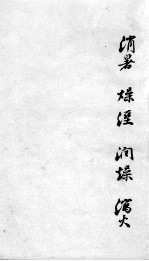 消暑 燥湿 润燥 泻火